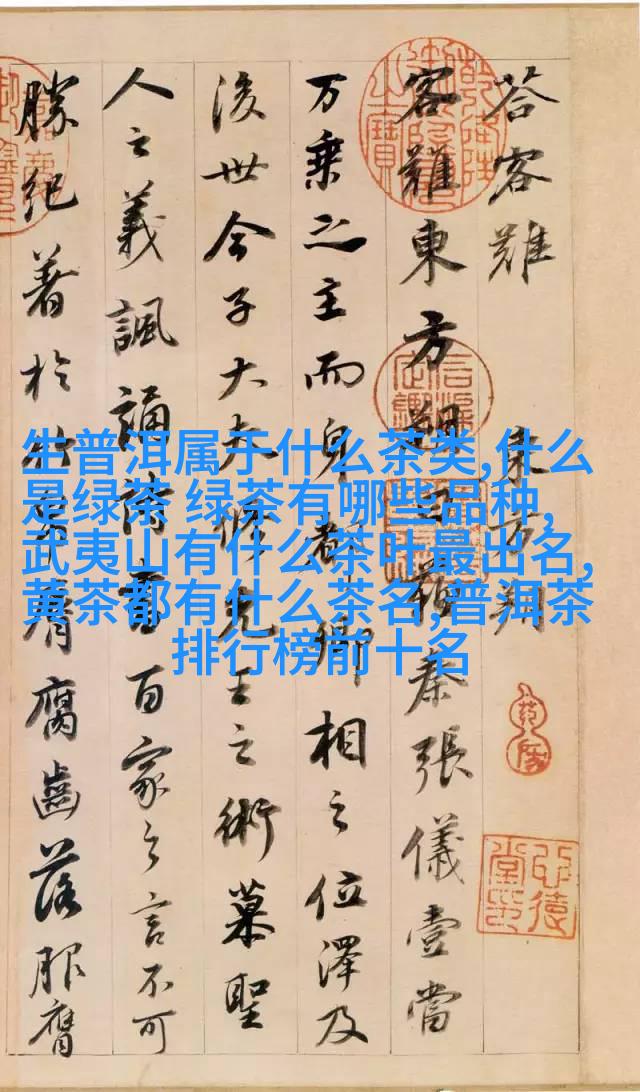 荅客難 東方朔
客難東方朔曰蘇秦張儀壹當
万乗之主而身都卿相之位澤及
後世今子大夫脩先王之術慕聖
人之義諷誦詩書百家之言不可
勝紀著於竹帛脣腐齒落服膺
生普洱属于什么茶类,什么
是绿茶 绿茶有哪些品种,
武夷山有什么茶叶最出名,
黄茶都有什么茶名,普洱茶
排行榜前十名